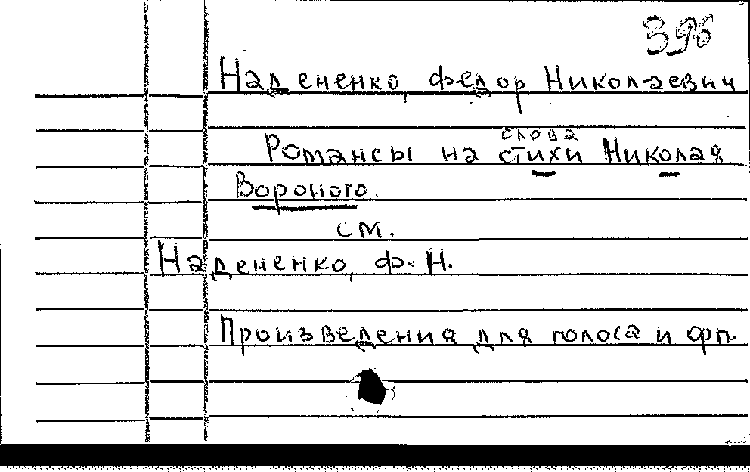 396
Надененко, Федор Николаевич
слова
Романсы на стихи Николая
Вороного.
см.
Надененко, Ф. Н.
Произведения для голоса и фп.